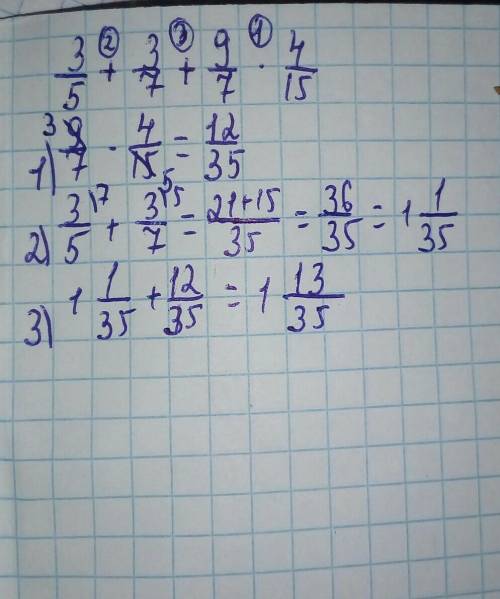 3/5 +② 3/7 +③ 9/7 ·① 4/15
1) 9/7 3 · 4/15 5 = 12/35
2) 3/5 \7 + 3/7 \5 = 21+15/35 = 36/35 = 1 1/35
3) 1 1/35 + 12/35 = 1 13/35